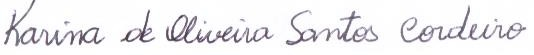 Karina de Oliveira Santos Cordeiro